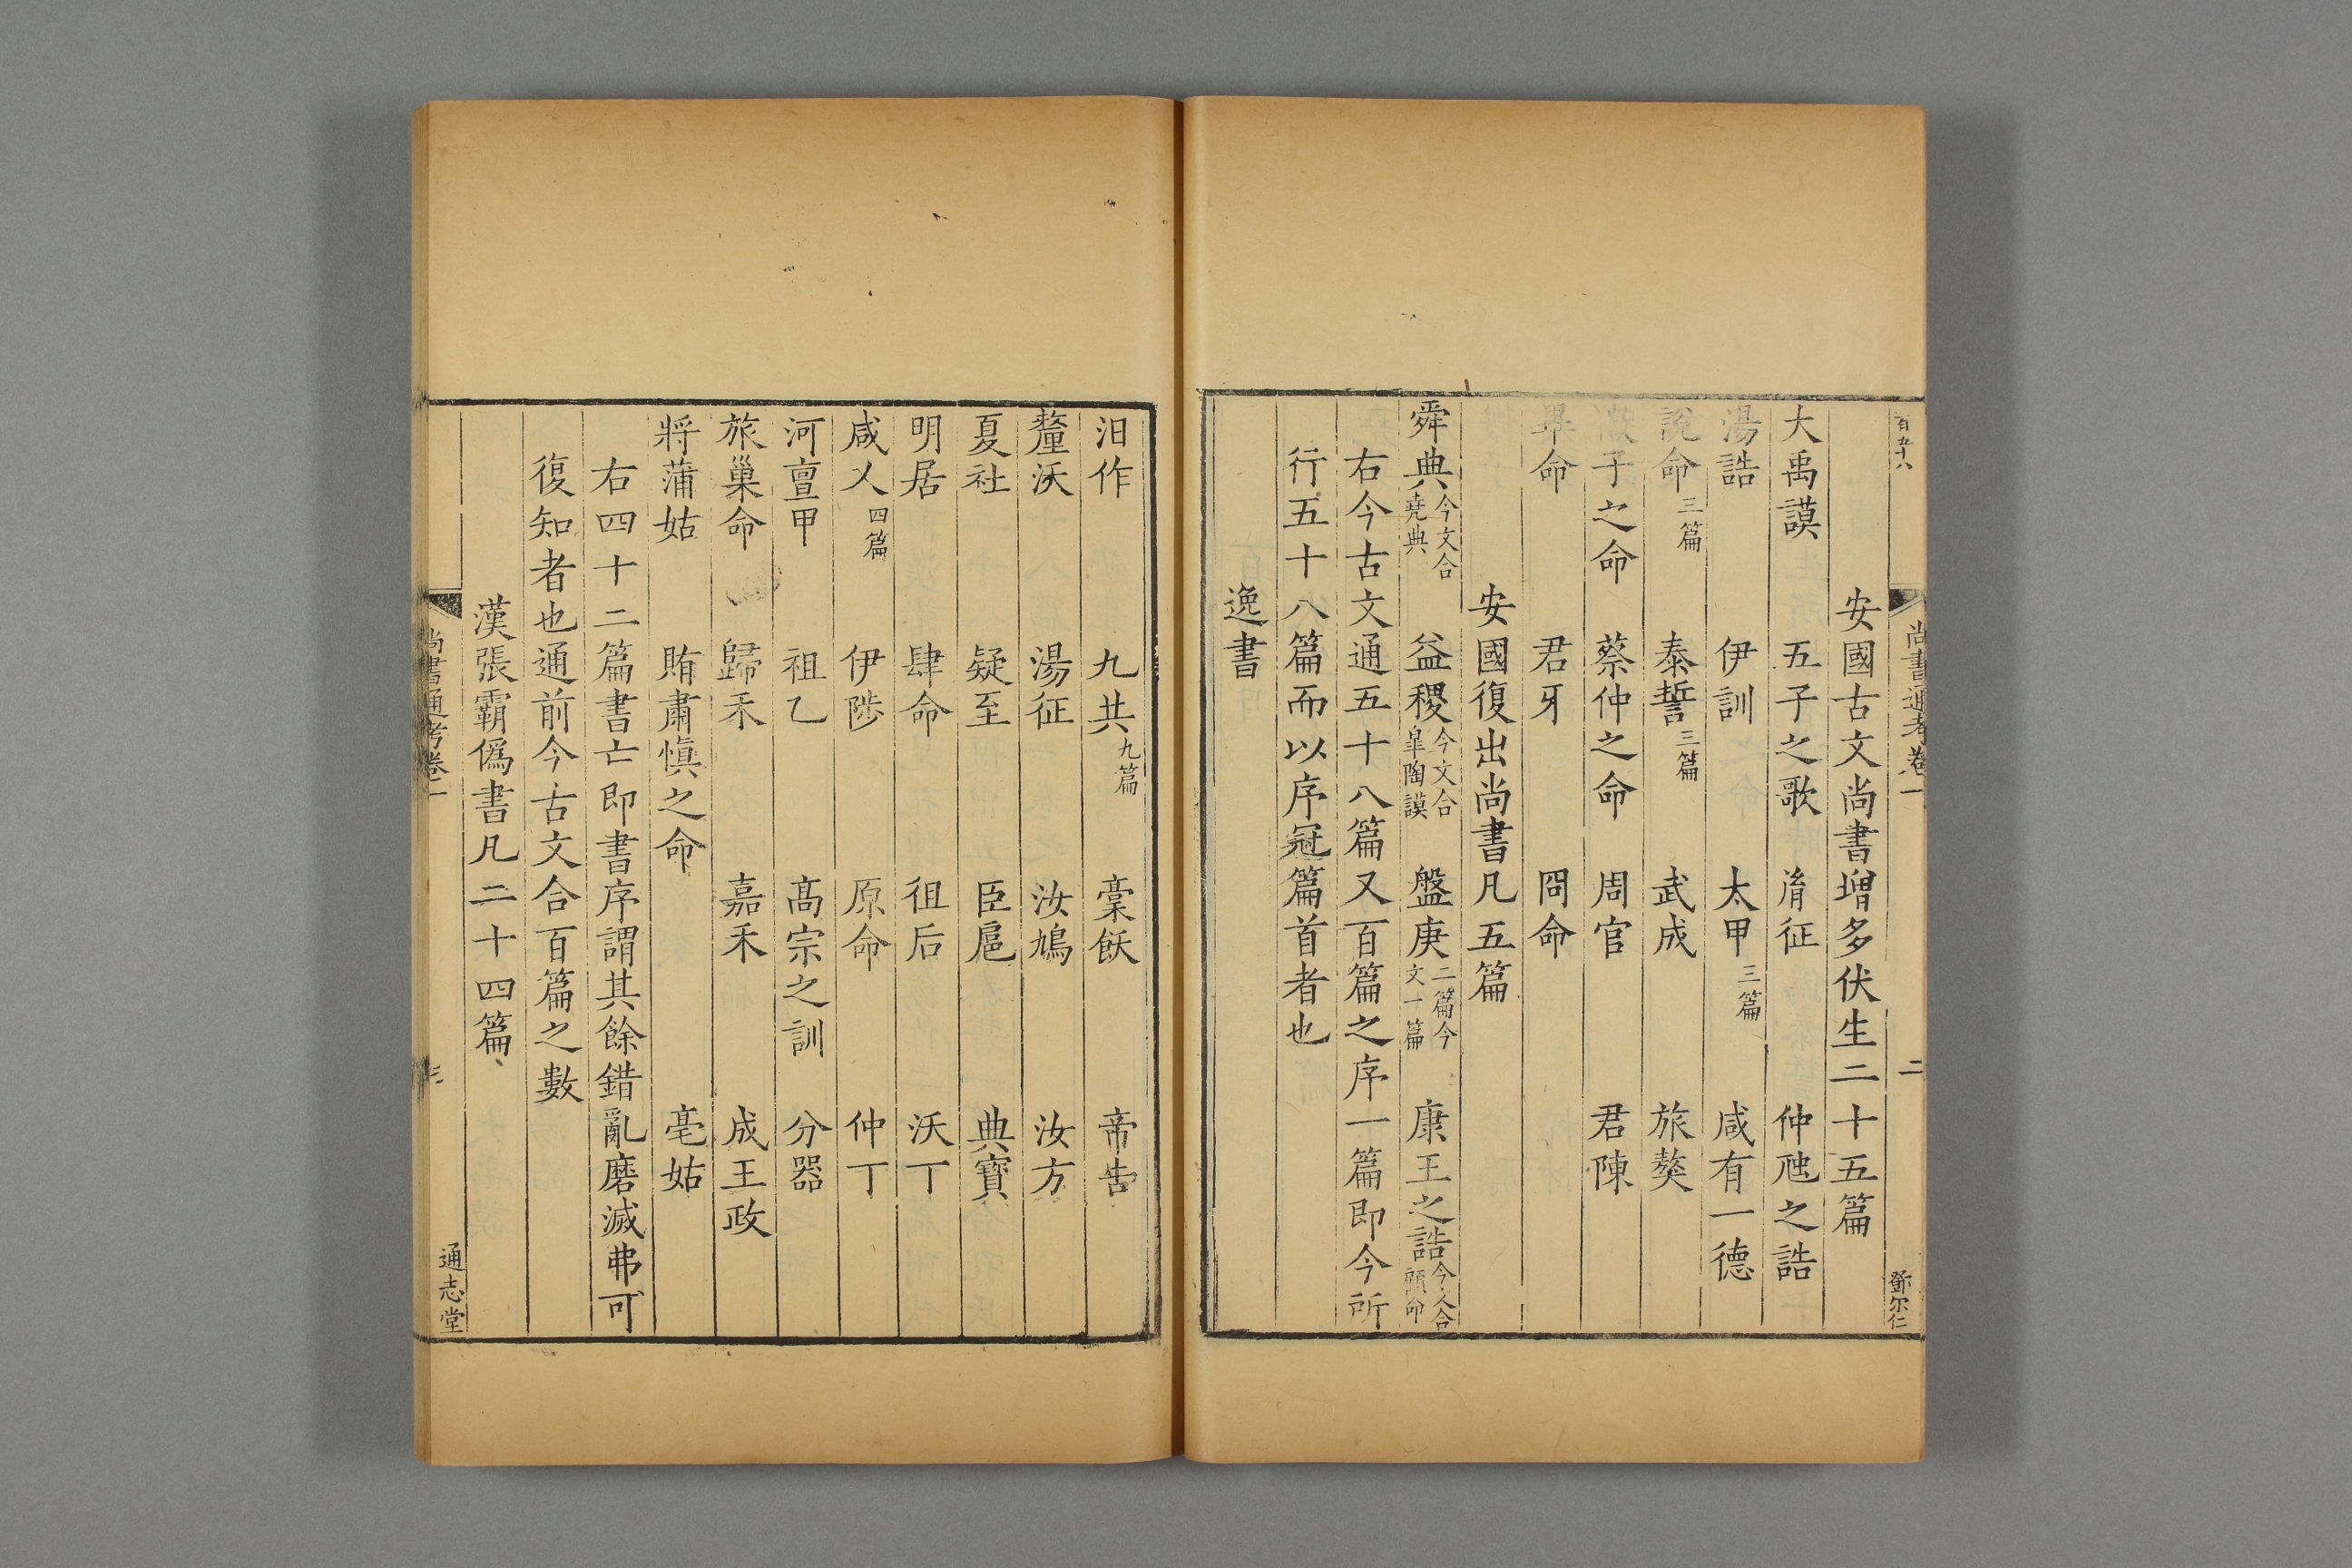 百五十八
尚書通考卷一
二
鄧尔仁
安國古文尚書增多伏生二十五篇
大禹謨 五子之歌 胤征 仲虺之誥
湯誥 伊訓 太甲三篇 咸有一德
說命三篇 泰誓三篇 武成 旅獒
微子之命 蔡仲之命 周官 君陳
畢命 君牙 冏命
安國復出尚書凡五篇
舜典今文合堯典 益稷今文合皐陶謨 盤庚二篇今文一篇 康王之誥今文合顧命
右今古文通五十八篇又百篇之序一篇即今所
行五十八篇而以序冠篇首者也
逸書
汨作 九共九篇 槀飫 帝告
釐沃 湯征 汝鳩 汝方
夏社 疑至 臣扈 典寶
明居 肆命 徂后 沃丁
咸乂四篇 伊陟 原命 仲丁
河亶甲 祖乙 髙宗之訓 分器
旅巢命 歸禾 嘉禾 成王政
將蒲姑 賄肅慎之命 亳姑
右四十二篇書亡即書序謂其餘錯亂磨滅弗可
復知者也通前今古文合百篇之數
漢張霸僞書凡二十四篇
尚書通考卷一
三
通志堂